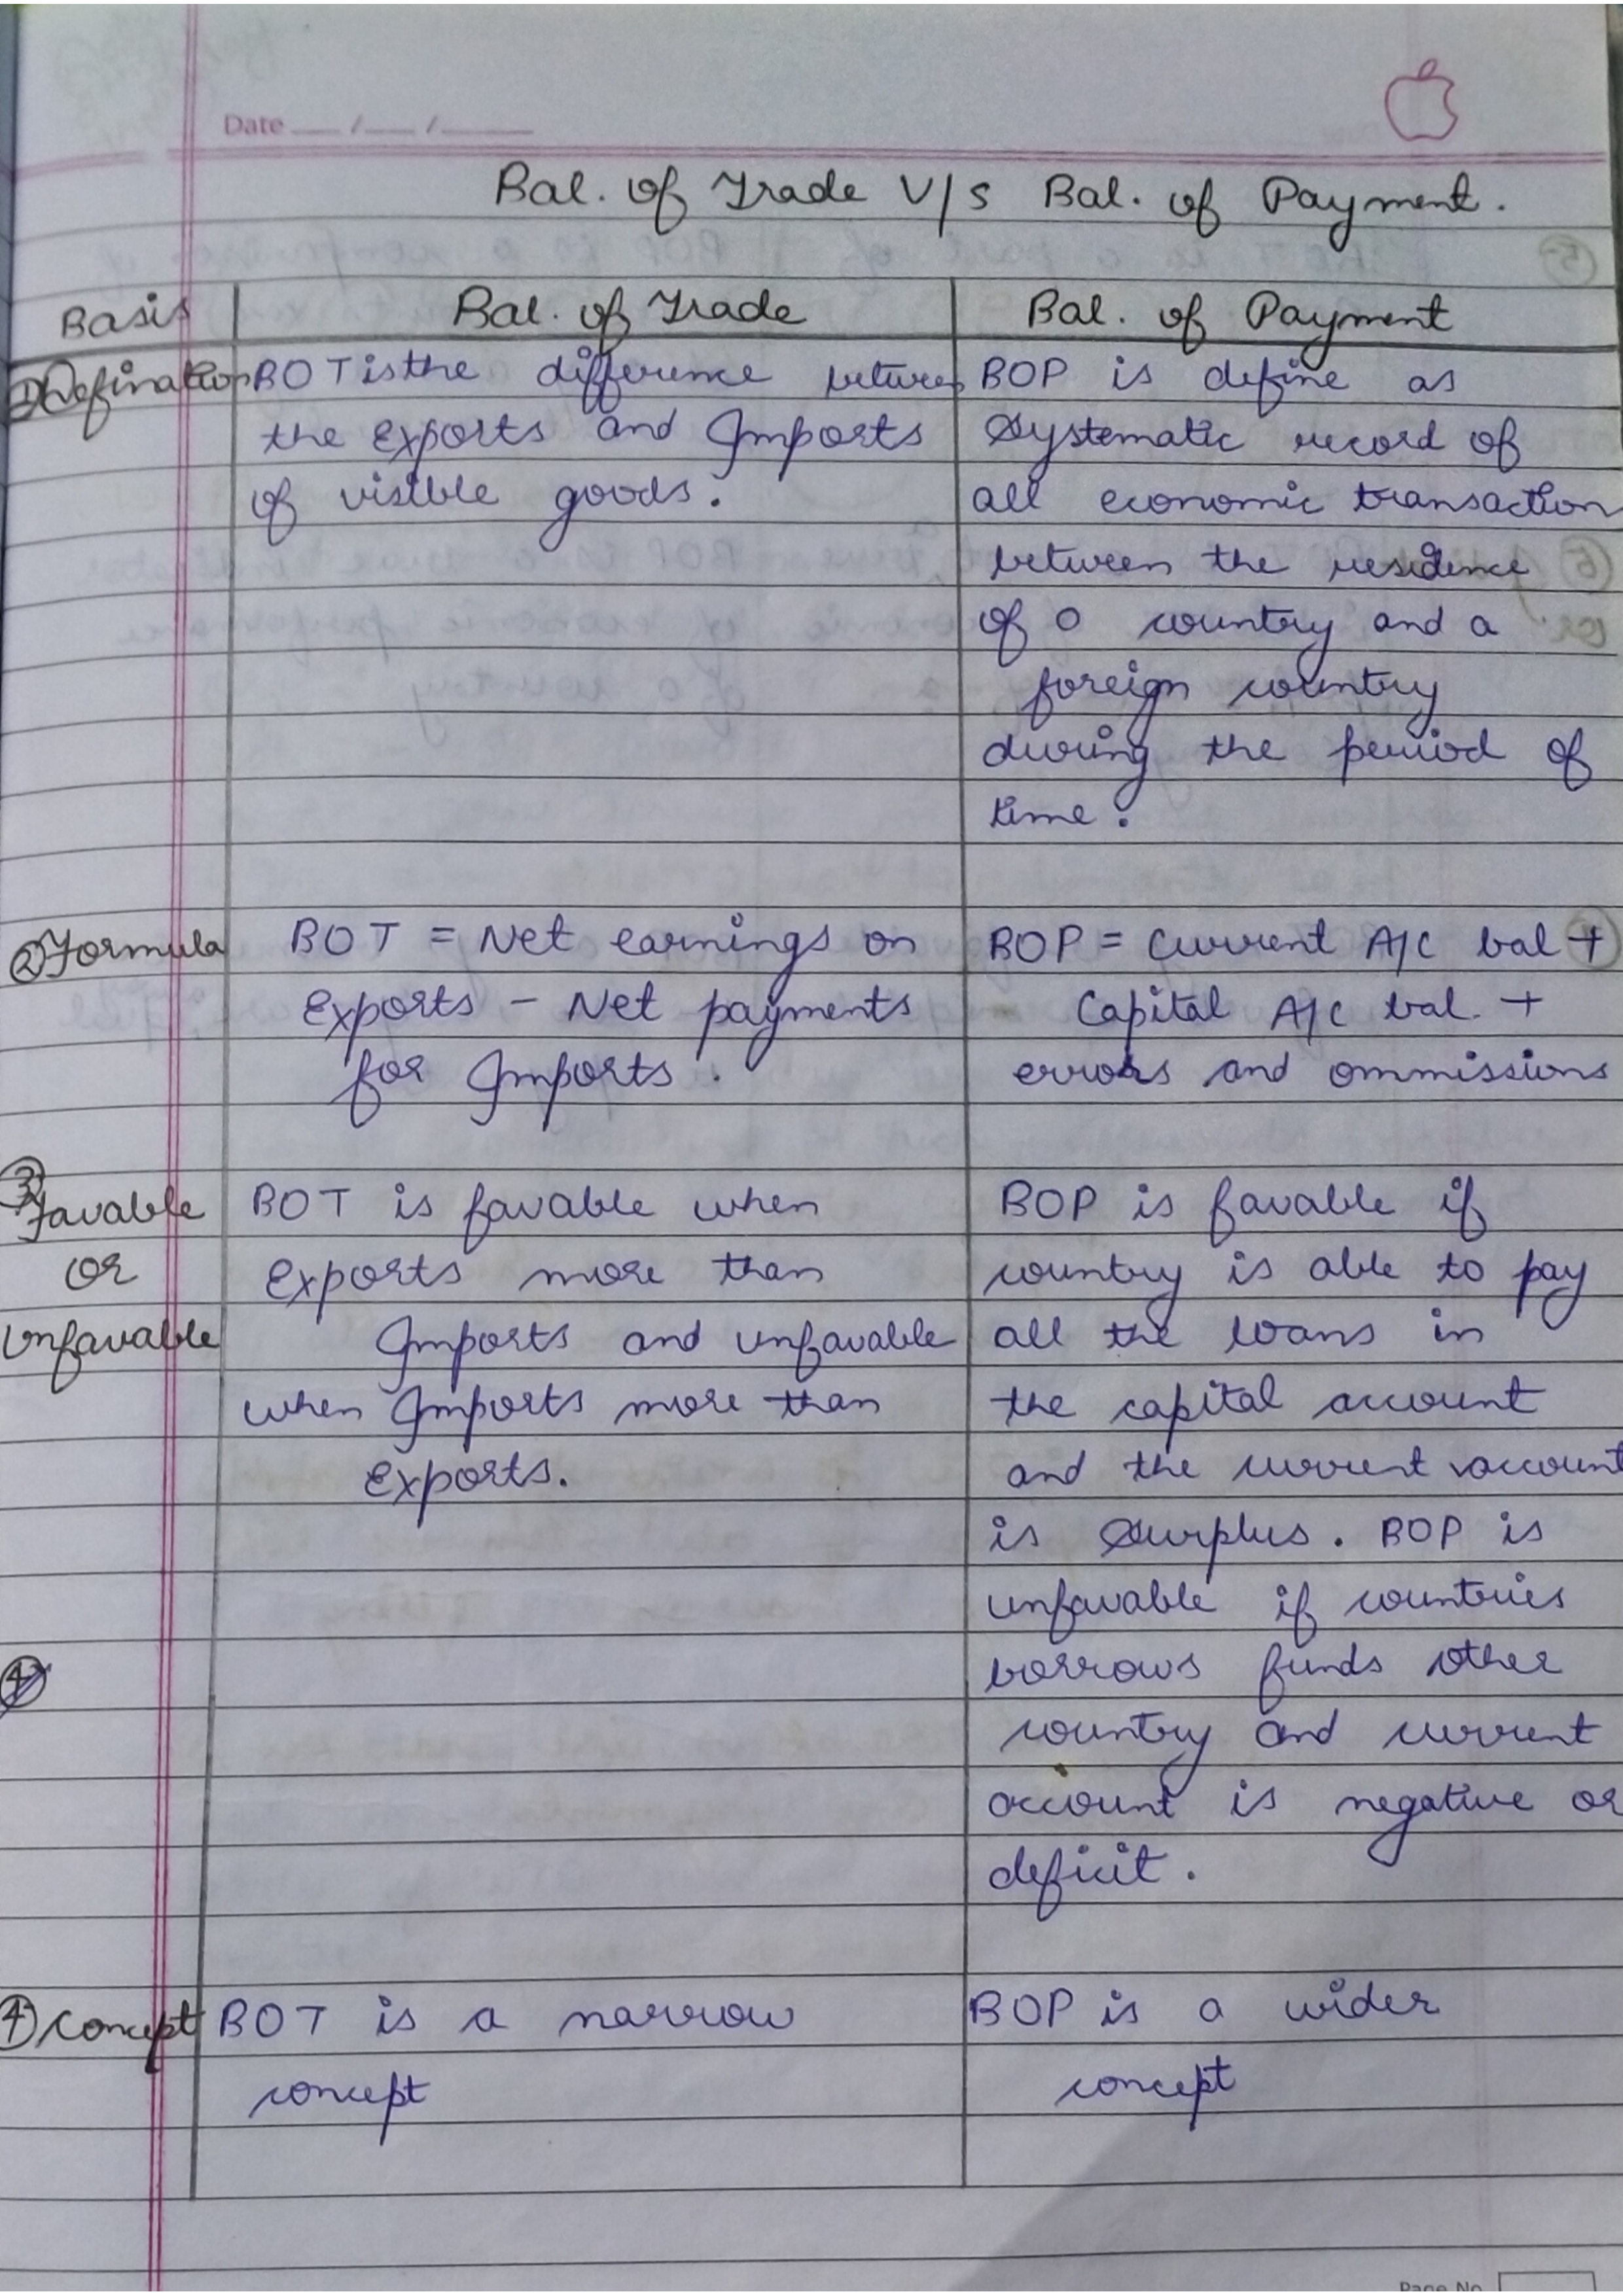 Date ___ /___ /_____
Bal. of Trade V/s Bal. of Payment.
Basis Bal. of Trade Bal. of Payment
① Defination BOT is the difference between
the Exports and Imports
of visible goods.
BOP is define as
Systematic record of
all economic transaction
between the residence
of o country and a
foreign country
during the period of
time.
② Formula BOT = Net earnings on
Exports - Net payments
for Imports.
BOP = Current A/c bal +
Capital A/c bal. +
errors and ommissions
③
Favable
or
Unfavable
BOT is favable when
Exports more than
Imports and unfavable
when Imports more than
Exports.
BOP is favable if
country is able to pay
all the loans in
the capital account
and the current account
is Surplus. BOP is
unfavable if countries
borrows funds other
country and current
account is negative or
deficit.
④ Concept BOT is a narrow
concept
BOP is a wider
concept
Page No.